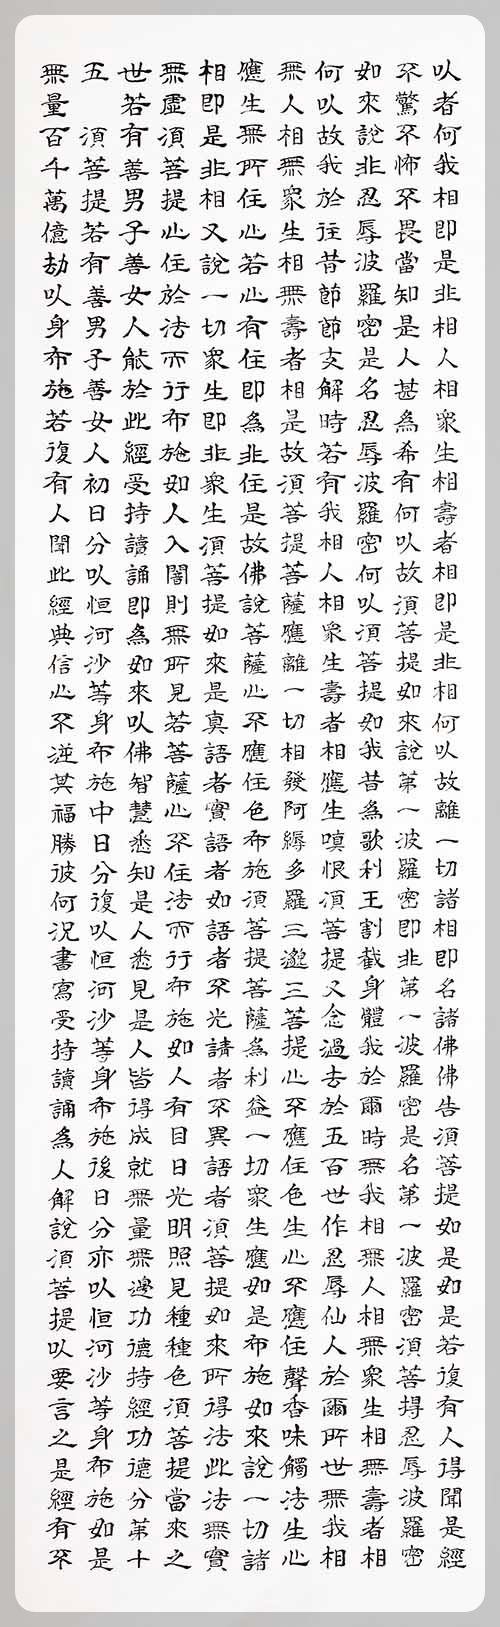 以者何我相即是非相人相眾生相壽者相即是非相何以故離一切諸相即名諸佛佛告須菩提如是如是若復有人得聞是經
不驚不怖不畏當知是人甚為希有何以故須菩提如來說第一波羅密即非第一波羅密是名第一波羅密須菩提忍辱波羅密
如來說非忍辱波羅密是名忍辱波羅密何以須菩提如我昔為歌利王割截身體我於爾時無我相無人相無眾生相無壽者相
何以故我於往昔節節支解時若有我相人相眾生壽者相應生嗔恨須菩提又念過去於五百世作忍辱仙人於爾所世無我相
無人相無眾生相無壽者相是故須菩提菩薩應離一切相發阿縟多羅三邈三菩提心不應住色生心不應住聲香味觸法生心
應生無所住心若心有住即為非住是故佛說菩薩心不應住色布施須菩提菩薩為利益一切眾生應如是布施如來說一切諸
相即是非相又說一切眾生即非眾生須菩提如來是真語者實語者如語者不光請者不異語者須菩提如來所得法此法無實
無虛須菩提心住於法而行布施如人入闇則無所見若菩薩心不住法而行布施如人有目日光明照見種種色須菩提當來之
世若有善男子善女人能於此經受持讀誦即為如來以佛智慧悉知是人悉見是人皆得成就無量無邊功德持經功德分第十
五 須菩提若有善男子善女人初日分以恒河沙等身布施中日分復以恒河沙等身布施後日分亦以恒河沙等身布施如是
無量百千萬億劫以身布施若復有人聞此經典信心不逆其福勝彼何況書寫受持讀誦為人解說須菩提以要言之是經有不